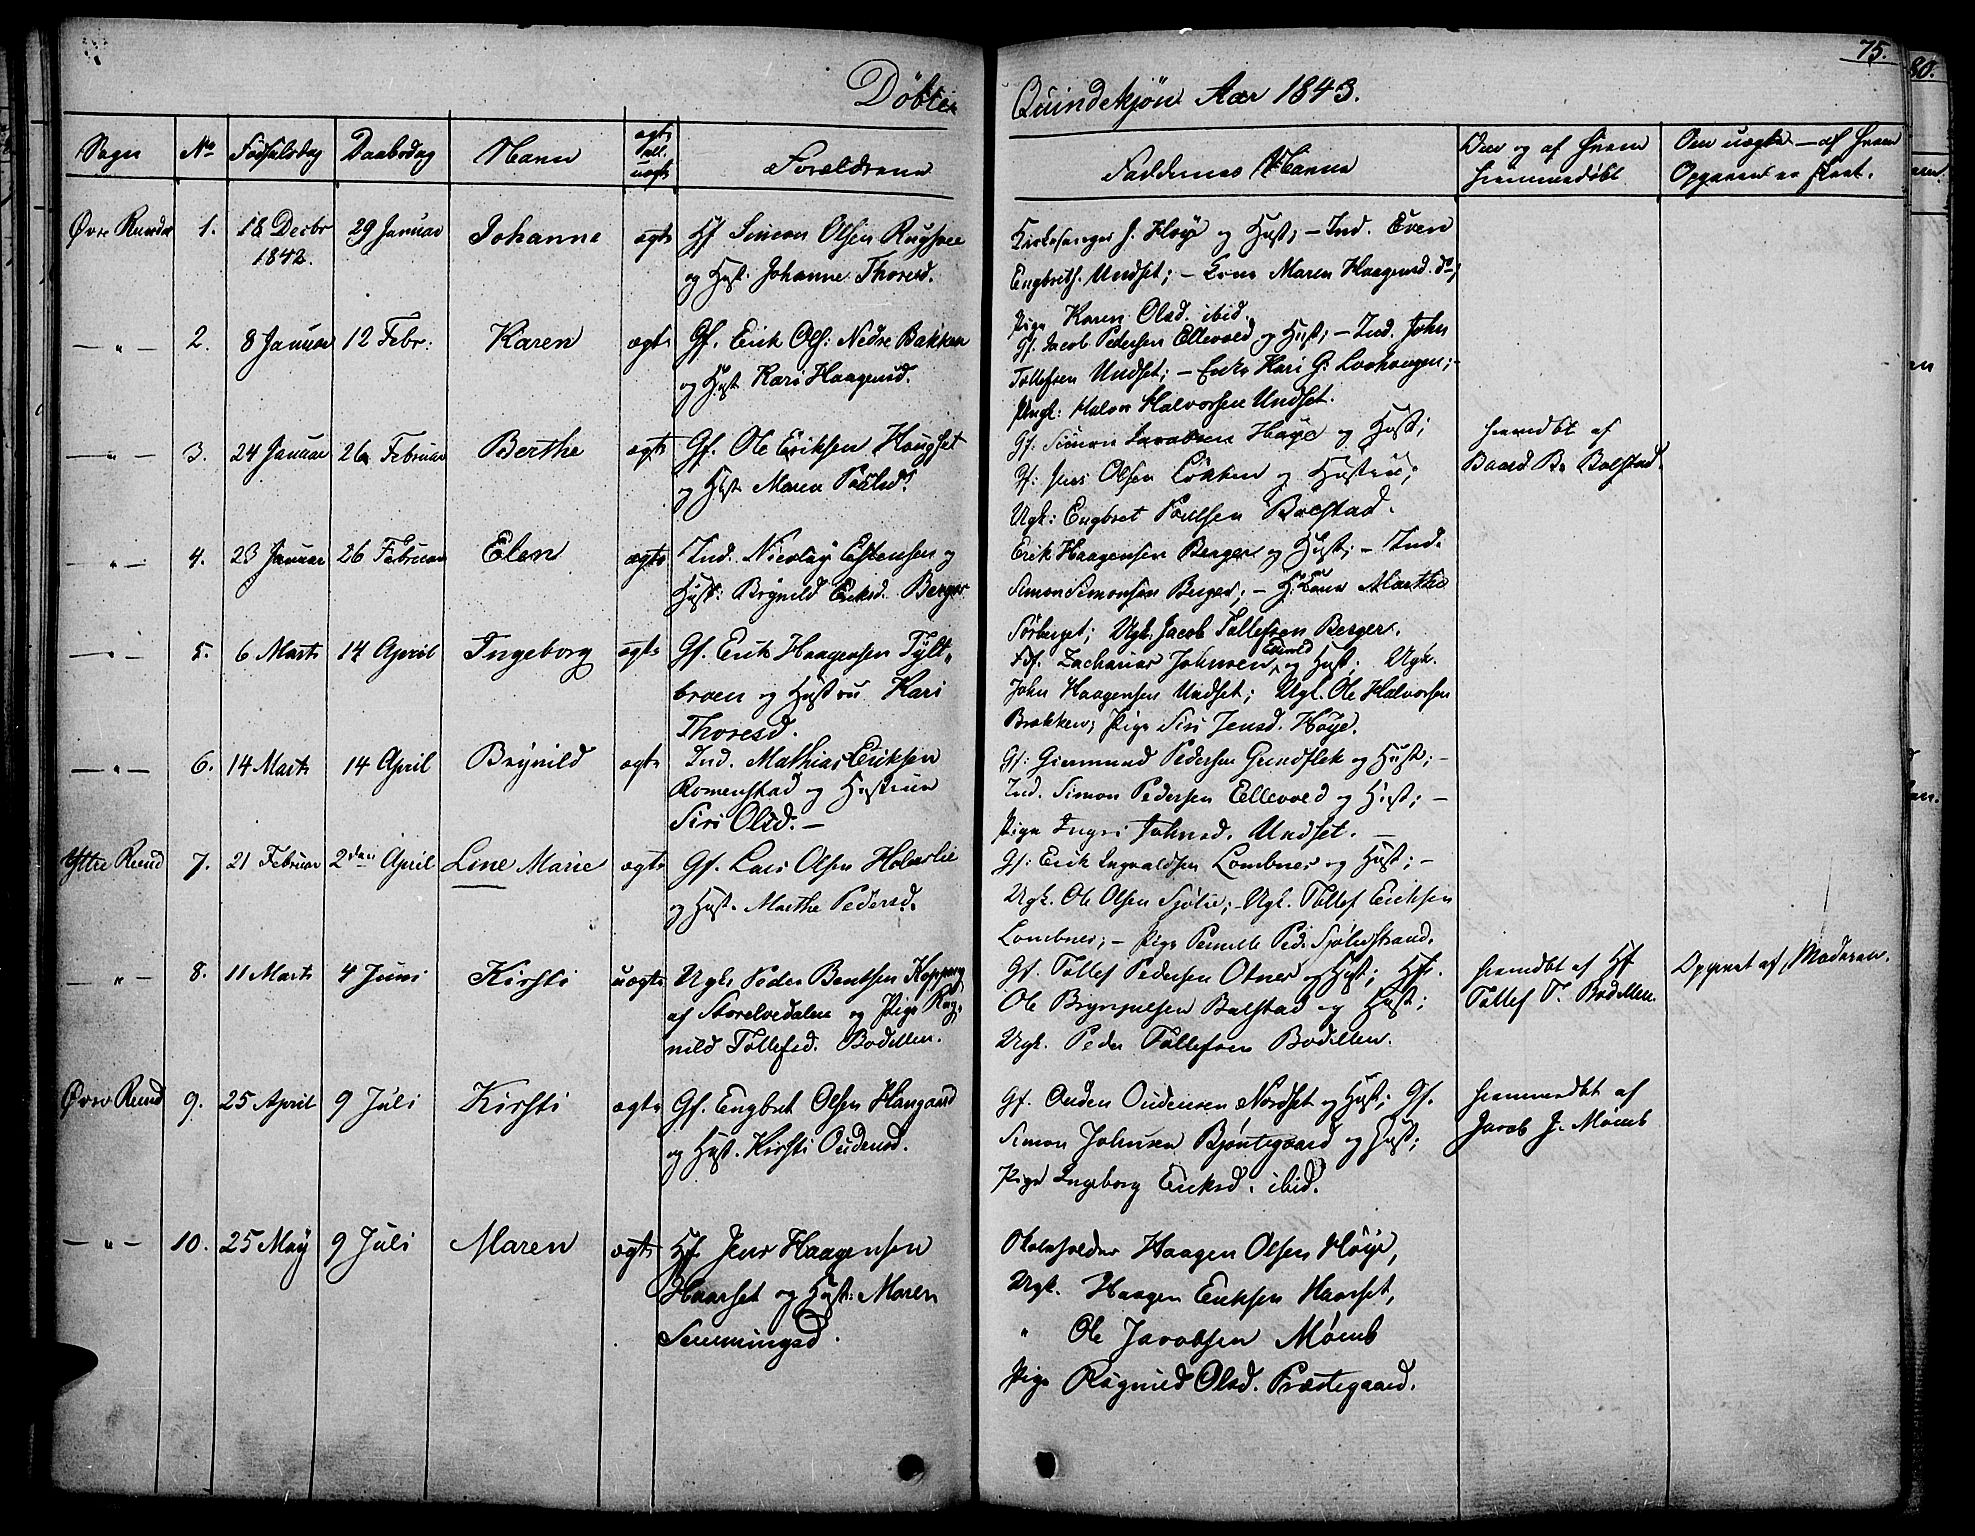 75.
80.
Døbte Quindekjøn Aar 1843.
Sogn No Fødselsdag Daabsdag Navn ægte ell. uægte Forældrene Faddernes Navne Om og af hvem hjemmedøbt Om uægte — af hvem Opgaven er skeet.
Øvre Rendal 1. 18 Decbr 1842. 29 Januar Johanne ægte
Hf Simon Olsen
og Hust. Johanne Thoresd.
Kirkesanger J. Høye og Hust; — Ind. Even
Engbrets. Undset; — Kone Maren Haagensd. do;
Pige Karen Olsd. ibid.
— " — 2. 8 Januar 12 Febr: Karen ægte
Gf. Erik Ols: Nedre Bakken
og Hust Kari Haagensd.
Gf: Jacob Pedersen Ellevold og Hust; — Ind. John
Tollefsen Undset; — Enke Kari G. Lovhaugen; —
Ungk: Halvor Halvorsen Undset.
— " — 3. 24 Januar 26 Februar Berthe ægte
Gf. Ole Eriksen Haugset
og Hust Maren Poulsd.
Gf: Simon Jacobsen Høye og Hust;
Gf: Jens Olsen Løkken og Hustru;
Ugk: Engbret Poulsen Balstad.
hjemdbt af
Baard B. Balstad.
— " — 4. 23 Januar 26 Februar Elen ægte
Ind. Nicolay Estensen og
Hust: Brynild Eriksd. Berger
Erik Haagensen Berger og Hust; — Ind.
Simon Simonsen Berger; — H.Kone Marthe
Sørberget; Ugk. Jacob Tollefsen Berger.
— " — 5. 6 Marts 14 April Ingeborg ægte
Gf. Erik Haagensen Fylt-
braen og Hustru Kari
Thoresd.
Zacharias Johnsen og Hust; Ugk.
John Haagensen Undset; Ugk. Ole Halvorsen
Brækken; Pige Siri Jensd. Høye.
— " — 6. 14 Marts 14 April Brynild ægte
Ind. Mathias Eriksen
Romenstad og Hustrue
Siri Olsd. —
Gf: Giermund Pedersen Grindflek og Hust; —
Ind. Simon Pedersen Ellevold og Hust; —
Pige Ingri Johnsd. Undset. —
Yttre Rend 7. 21 Februar 2den April Line Marie ægte
Gf. Lars Olsen Holmslie
og Hust. Marthe Pedersd.
Gf: Erik Ingvaldsen Lombnes og Hust; —
Ugk. Ole Olsen Sjølie; — Ugk. Tollef Eriksen
Lombnes; — Pige Pernille Ped. Sjølistrand.
— " — 8. 11 Marts 4 Juni Kirsti uægte
Ugk. Peder Bentsen Koppang
af Storelvedalen og Pige Rag-
nild Tollefsd. Bodillen.
Gf. Tollef Pedersen Otnes og Hust; Hf.
Ole Brynjulsen Balstad og Hust;
Ugk. Peder Tollefsen Bodillen.
hjemdbt af Hf
Tollef T. Bodillen.
Opgivet af Moderen.
Øvre Rend 9. 25 April 9 Juli Kirsti ægte
Gf. Engbret Olsen Haugaard
og Hust. Kirsti Oudensd.
Gf. Ouden Oudensen Nordset og Hust; Gf.
Simon Johnsen Bjøntegaard og Hust;
Pige Ingeborg Eriksd. ibid.
hjemmedbt af
Jacob J. Mömb
— " — 10. 25 May 9 Juli Maren ægte
Hf Jens Haagensen
Haarset og Hust: Maren
Semmingsd.
Skoleholder Haagen Olsen Høye,
Ugk. Haagen Eriksen Haarset,
" Ole Jacobsen Mömb
Pige Ragnild Olsd. Præstegaard.